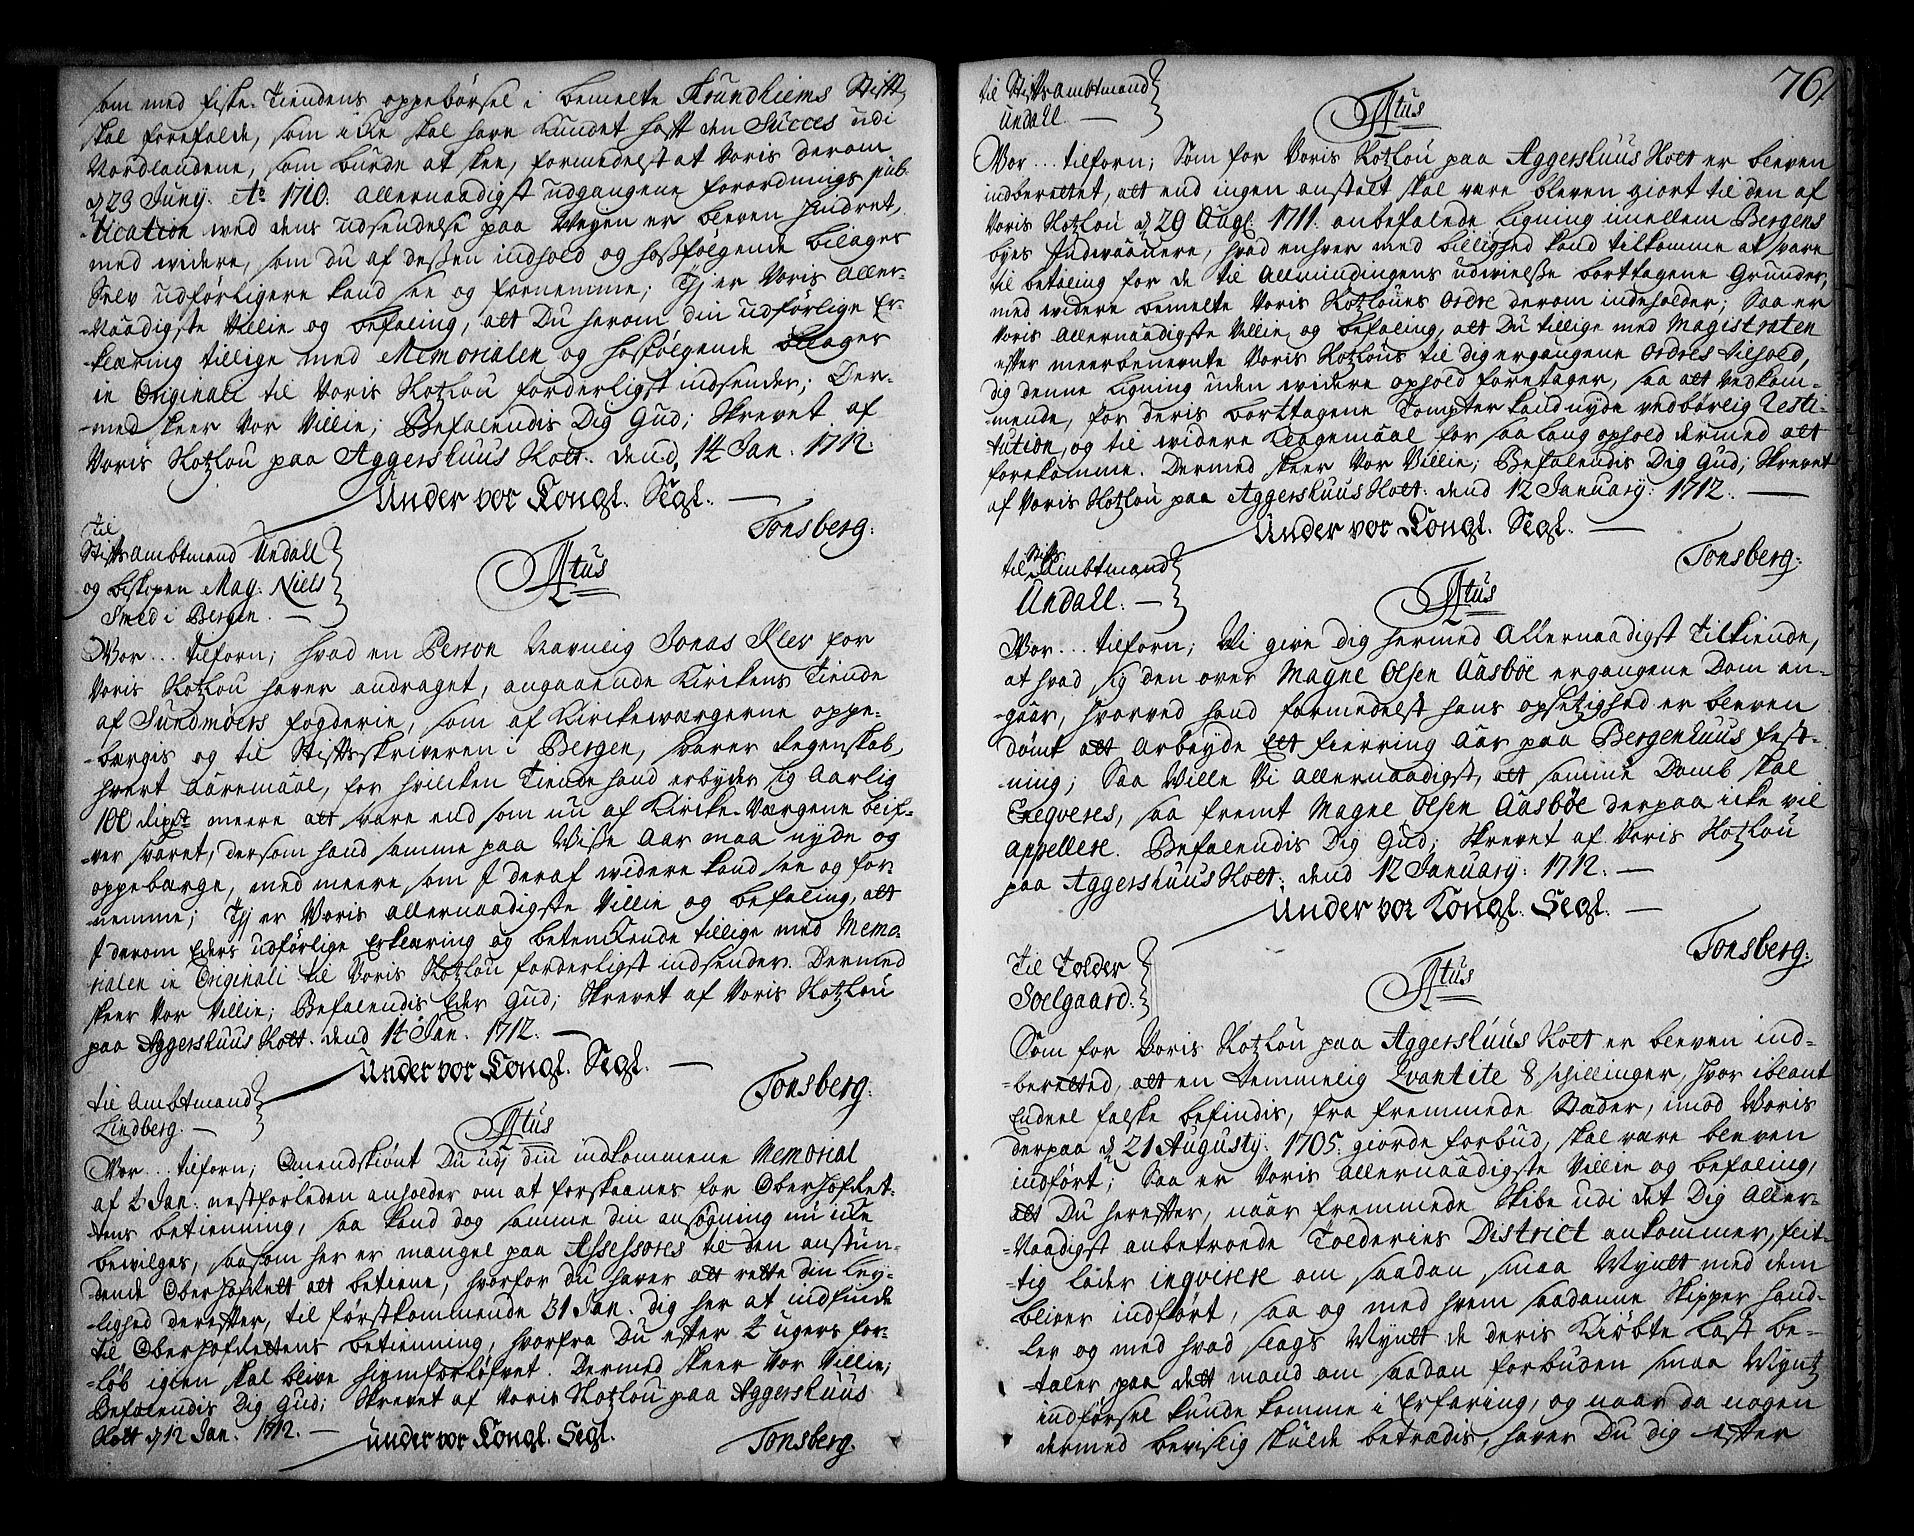 som med fiske-Tiendens oppebörsel i bemelte Trundhiems Stift
skal forefalde, som icke skal have kundet haft den Succes udi
Nordlandene, som burde at skee, formedelst at Voris derom
d. 23 Juny. Ao 1710. allernaadigst udgangene forordnings pub-
-lication ved dens udsendelse paa Veyen er bleven hindret,
med widere, som du af dessen indhold og hosfølgende bilager
Selv udførligere kand see og fornemme; Thj er Voris Aller-
-Naadigste Villie og befaling, att Du herom din udførlige Er-
-klæring tillige med Memorialen og hosfølgende bilager
in Originali til Voris Slotzlou forderligst indsender; Der-
-med skeer Vor Villie; Befalendis Dig Gud; Skrevet af
Voris Slotzlou paa Aggershuus Slott. dend 14 Jan. 1712.
Under vor Kongl. Segl.
Tonsberg.
til
Stiftsambtmand Undall
og biskopen Mag: Niels
Smed i Bergen.
Atus
Vor... tilforn; hvad en Person Navnlig Jonas Klev for
Voris Slotzlou haver andraget, angaaende Kirckens Tiende
af Sundmøers fogderie, som af Kirckeværgerne oppe-
-bærgis og til Stiftsskriveren i Bergen, giøres Regenskab
hvert aaremaal, for hvilcken Tiende hand erbyder sig aarlig
100 rixdr meere att svare end som nu af Kircke-Værgene blif-
-ver svaret, dersom hand samme paa Visse aar maa nyde og
oppebærge, med meere, som I deraf widere kand see og for-
nemme; Thj er Voris allernaadigste Villie og befaling, att
I derom Eders udførlige Erklæring og betenckende tillige med Memo-
rialen in Originali til Voris Slotzlou forderligst indsender. Dermed
skeer Vor Villie; Befalendis Eder Gud; Skrevet af Voris Slotzlou
paa Aggershuus Slott. dend 14 Jan. 1712.
Under vor Kongl. Segl.
Tonsberg.
til Ambtmand
Lindberg.
Atus
Vor... tilforn; Omendskiønt Du udj din indkommene Memorial
af 2 Jan. nestforleden anholder om at forskaanes for Oberhofret-
-tens betienning, saa kand dog samme din ansøgning nu icke
bevilges, saasom her er mangel paa Assessores til den anstun-
-dende Oberhofrett att betiene, hvorfor du haver att rette din Ley-
-lighed derefter, til førstkommende 31 Jan. dig her at indfinde
til Oberhofrettens betienning, hvorfra Du efter 2 ugers for-
-løb igien skal blive hiemforløfvet. Dermed skeer Vor Villie;
Befalendis Dig Gud; Skrevet af Voris Slotzlou paa Aggershuus
Slott d. 12 Jan. 1712.
under vor Kongl. Segl.
Tonsberg.
76
til Stiftsambtmand
Undall.
Atus
Vor... tilforn; Som for Voris Slotzlou paa Aggershuus Slott er bleven
indberettet, att end ingen anstalt skal være bleven giort til den af
Voris Slotzlou d. 29 Augl. 1711. anbefalede Ligning imellem Bergens
byes Indvaanere, hvad enhver med billighed kand tilkomme at svare
til betaling for de til Allmindingens udvielse borttagene Grunder,
med widere bemelte Voris Slotzloues Ordre derom indeholder; Saa er
Voris Allernaadigste Villie og befaling, att Du tillige med Magistraten
efter meerbenevnte Voris Slotzlous til dig ergangene Ordres tilhold,
dig denne Ligning uden widere ophold foretager, saa att vedkom-
-mende, for deris borttagene Tompter kand nyde vedbørlig Resti-
tution, og til widere klagemaal for saa lang ophold dermed att
forekomme. Dermed skeer Vor Villie; Befalendis Dig Gud; Skrevet
af Voris Slotzlou paa Aggershuus Slott: dend 12 January: 1712.
Under vor Kongl. Segl.
Tonsberg.
til Stifts Ambtmand
Undall.
Atus
Vor... tilforn; Vi give dig hermed Allernaadigst tilkiende,
at hvad sig den over Magne Olsen Aasböe ergangene Dom an-
-gaar, hvorved hand formedelst hans opsetzighed er bleven
dömt att arbeyde Ett fierring Aar paa Bergenhuus fest-
-ning; Saa Ville Vi allernaadigst, att samme Domb skal
Exeqveres, saa fremt Magne Olsen Aasböe derpaa icke vil
appellere. Befalendis Dig Gud; Skrevet af Voris Slotzlou
paa Aggershuus Slott: dend 12 January: 1712.
Under vor Kongl. Segl.
Tonsberg.
til Tolder
Soelgaard.
Atus
Som for Voris Slotzlou paa Aggershuus Slott er bleven ind-
-beretted, att en temmelig Qvantite 8 schillinger, hvor iblant
Endeel falske befindis, fra fremmede Stæder, imod Voris
derpaa d. 21 Augusty: 1705. giorde forbud, skal være bleven
indført; Saa er Voris allernaadigste Villie og befaling,
att Du herefter, naar fremmede Skibe udi det Dig Aller-
-Naadigst anbetroede Tolderies District ankommer, flit-
-tig lader inqvirere om saadan smaa Mynt med dem
bliver indført, saa og med hvem saadanne Skipper hand-
ler og med hvad slags Mynt de deris Kiøbte Last be-
-taler paa dett mand om saadan forbuden smaa Mynts
indførsel kunde komme i Erfaring, og naar da nogen
dermed bevislig skulde betrædis, haver Du dig efter